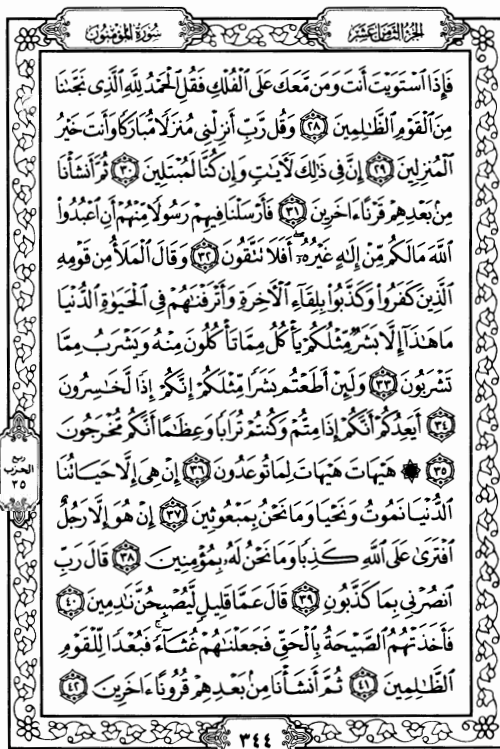 سُورَةُ المُؤْمِنُون
الجُزْءُ الثَّامِنَ عَشَرَ
فَإِذَا ٱسْتَوَيْتَ أَنتَ وَمَن مَّعَكَ عَلَى ٱلْفُلْكِ فَقُلِ ٱلْحَمْدُ لِلَّهِ ٱلَّذِى نَجَّىٰنَا
مِنَ ٱلْقَوْمِ ٱلظَّٰلِمِينَ ٢٨ وَقُل رَّبِّ أَنزِلْنِى مُنزَلًا مُّبَارَكًا وَأَنتَ خَيْرُ
ٱلْمُنزِلِينَ ٢٩ إِنَّ فِى ذَٰلِكَ لَءَايَٰتٍ وَإِن كُنَّا لَمُبْتَلِينَ ٣٠ ثُمَّ أَنشَأْنَا
مِنۢ بَعْدِهِمْ قَرْنًا ءَاخَرِينَ ٣١ فَأَرْسَلْنَا فِيهِمْ رَسُولًا مِّنْهُمْ أَنِ ٱعْبُدُوا۟
ٱللَّهَ مَا لَكُم مِّنْ إِلَٰهٍ غَيْرُهُۥٓ أَفَلَا تَتَّقُونَ ٣٢ وَقَالَ ٱلْمَلَأُ مِن قَوْمِهِ
ٱلَّذِينَ كَفَرُوا۟ وَكَذَّبُوا۟ بِلِقَآءِ ٱلْءَاخِرَةِ وَأَتْرَفْنَٰهُمْ فِى ٱلْحَيَوٰةِ ٱلدُّنْيَا
مَا هَٰذَآ إِلَّا بَشَرٌ مِّثْلُكُمْ يَأْكُلُ مِمَّا تَأْكُلُونَ مِنْهُ وَيَشْرَبُ مِمَّا
تَشْرَبُونَ ٣٣ وَلَئِنْ أَطَعْتُم بَشَرًا مِّثْلَكُمْ إِنَّكُمْ إِذًا لَّخَٰسِرُونَ
٣٤ أَيَعِدُكُمْ أَنَّكُمْ إِذَا مِتُّمْ وَكُنتُمْ تُرَابًا وَعِظَٰمًا أَنَّكُم مُّخْرَجُونَ
٣٥ ۞ هَيْهَاتَ هَيْهَاتَ لِمَا تُوعَدُونَ ٣٦ إِنْ هِىَ إِلَّا حَيَاتُنَا
ٱلدُّنْيَا نَمُوتُ وَنَحْيَا وَمَا نَحْنُ بِمَبْعُوثِينَ ٣٧ إِنْ هُوَ إِلَّا رَجُلٌ
ٱفْتَرَىٰ عَلَى ٱللَّهِ كَذِبًا وَمَا نَحْنُ لَهُۥ بِمُؤْمِنِينَ ٣٨ قَالَ رَبِّ
ٱنصُرْنِى بِمَا كَذَّبُونِ ٣٩ قَالَ عَمَّا قَلِيلٍ لَّيُصْبِحُنَّ نَٰدِمِينَ ٤٠
فَأَخَذَتْهُمُ ٱلصَّيْحَةُ بِٱلْحَقِّ فَجَعَلْنَٰهُمْ غُثَآءً فَبُعْدًا لِّلْقَوْمِ
ٱلظَّٰلِمِينَ ٤١ ثُمَّ أَنشَأْنَا مِنۢ بَعْدِهِمْ قُرُونًا ءَاخَرِينَ ٤٢
ربع
الحزب
٣٥
٣٤٤